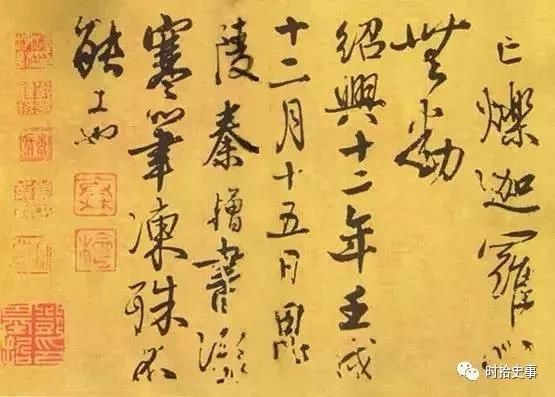 亡爍迦羅心
無動
紹興十二年壬戌
十二月十五日
陵秦檜書深
寒筆凍殊不
能工也
时拾史事